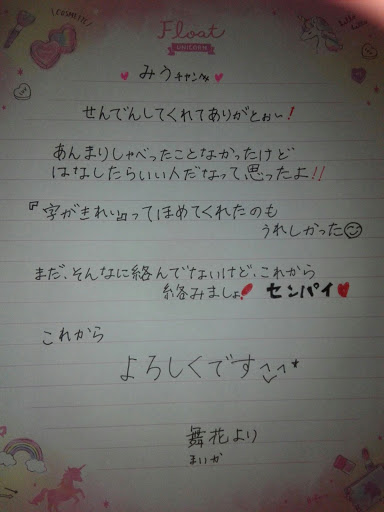 COSMETIC
Float
UNICORN
♥ みうチャンへ ♥
せんでんしてくれてありがとぉ〜!
あんまりしゃべったことなかったけど
はなしたらいい人だなって思ったよ!!
『字がきれい』ってほめてくれたのも
うれしかった☺
まだ、そんなに絡んでないけど、これから
絡みましょ! センパイ♥
これから
よろしくです^^*
舞花より
まいか